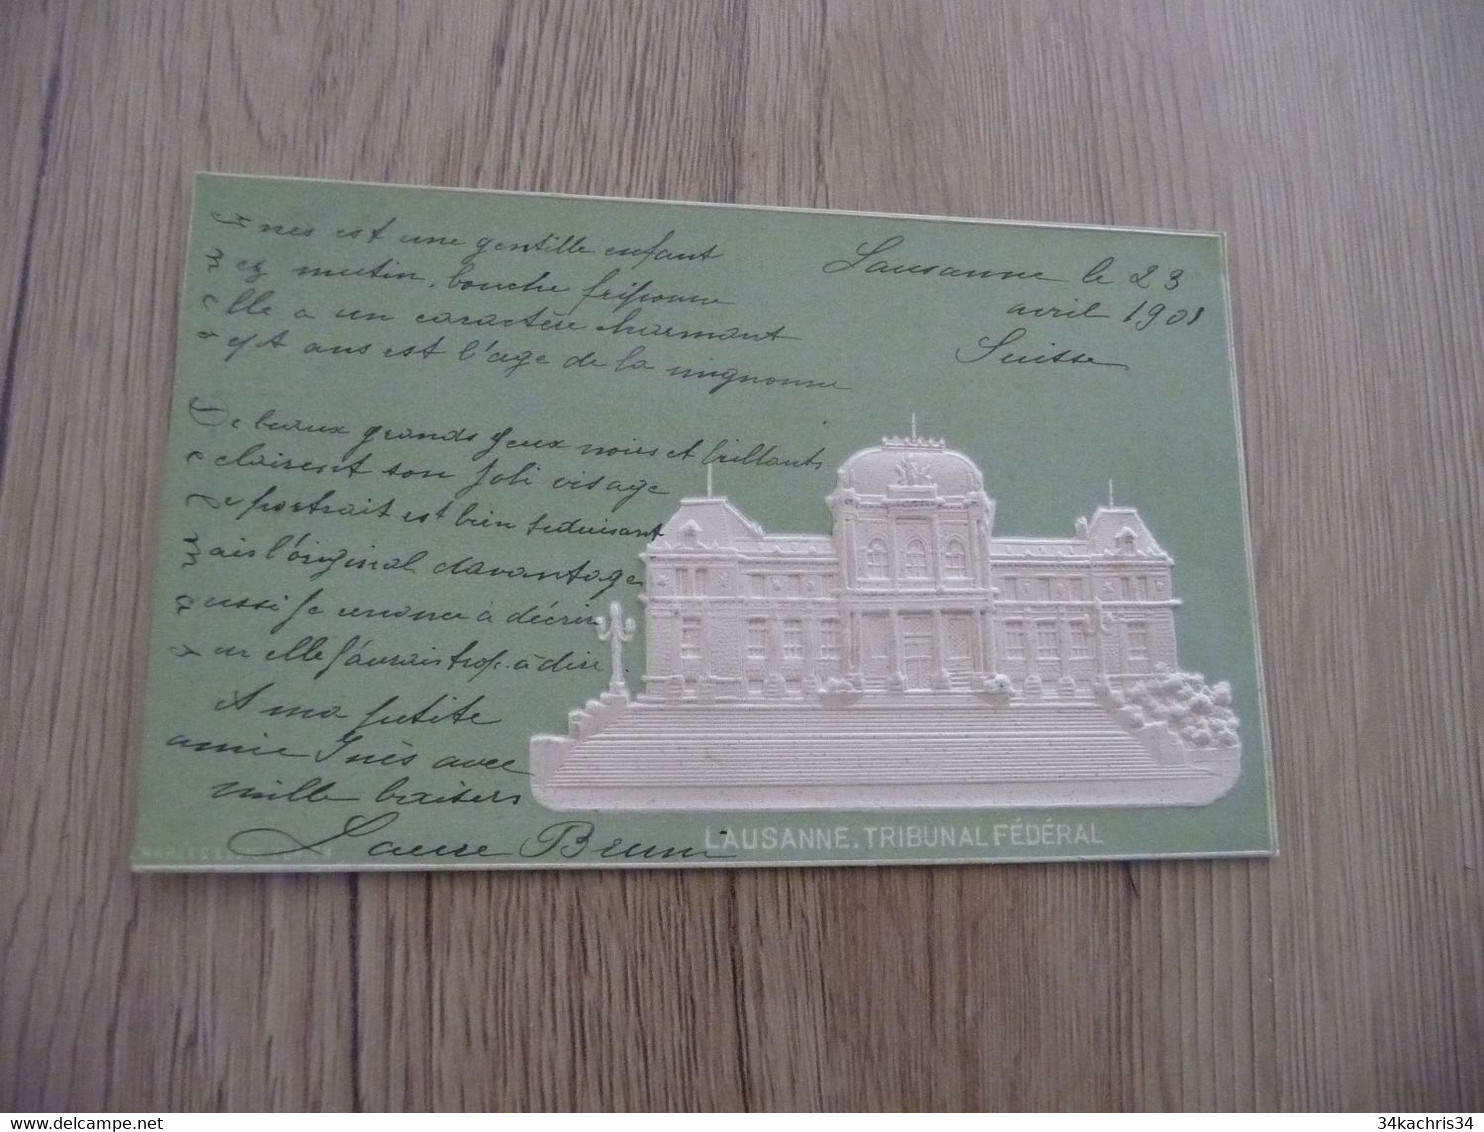 Inès est une gentille enfant
nez mutin, bouche friponne
elle a un caractère charmant
sept ans est l'age de la mignonne
De beaux grands yeux noirs et brillants
eclairent son joli visage
Le portrait est bien seduisant
mais l'original davantage
aussi je renonce à décrire
sur elle j'aurais trop à dire.
A ma petite
amie Inès avec
mille baisers
Laure Brun
Lausanne le 23
avril 1901
Suisse
LAUSANNE. TRIBUNAL FÉDÉRAL
34kachris34